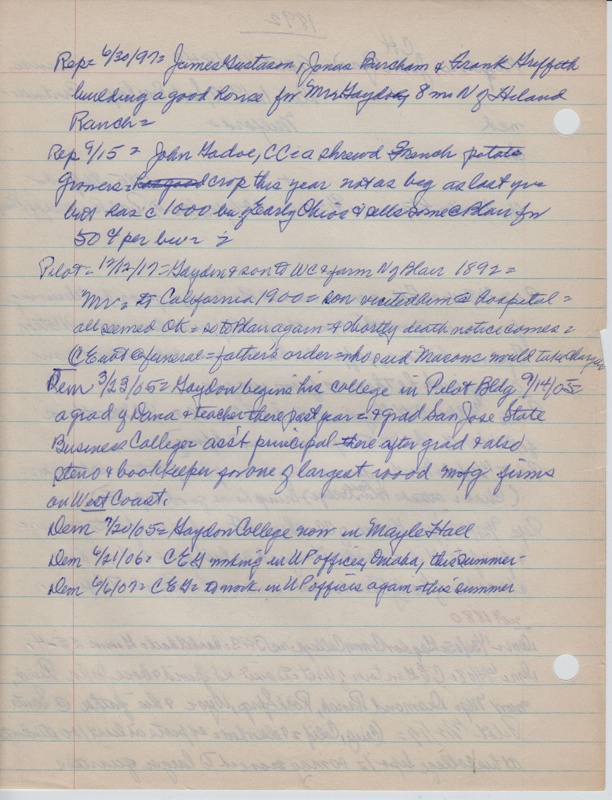 1892
Rep = 6/30/97 = James Gustason, Jonas Bersham & Frank Griffeth
building a good house for Mr Gaydon, 8 m N of Heland
Ranch =
Rep 9/15 = John Gadoe, CC = a shrewd French potato
growers = crop this year not as big as last yr
but has c 1000 bu of Early Ohio's & sells some @ Blair for
50¢ per bu =
Pilot = 12/12/17 = Gaydon & son to WC & farm N of Blair 1892 =
Mr = to California 1900 = son visited him @ hospital =
all seemed OK = so to Blair again & shortly death notice comes =
CE not @ funeral = father's order = who said Masons would take charge
Dem 3/23/05 = Gaydon begins his college in Pilot Bldg 9/14/05 =
a grad of Dana & teacher there past year = & grad San Jose State
Business College & ass't principal there after grad & also
steno & bookkeeper for one of largest wood mnfg firms
on West Coast.
Dem 7/20/05 = Gaydon College now in Mayle Hall
Dem 6/21/06 = CEG working in UP offices, Omaha, this summer -
Dem 6/6/07 = CEG = to work in UP offices again this summer